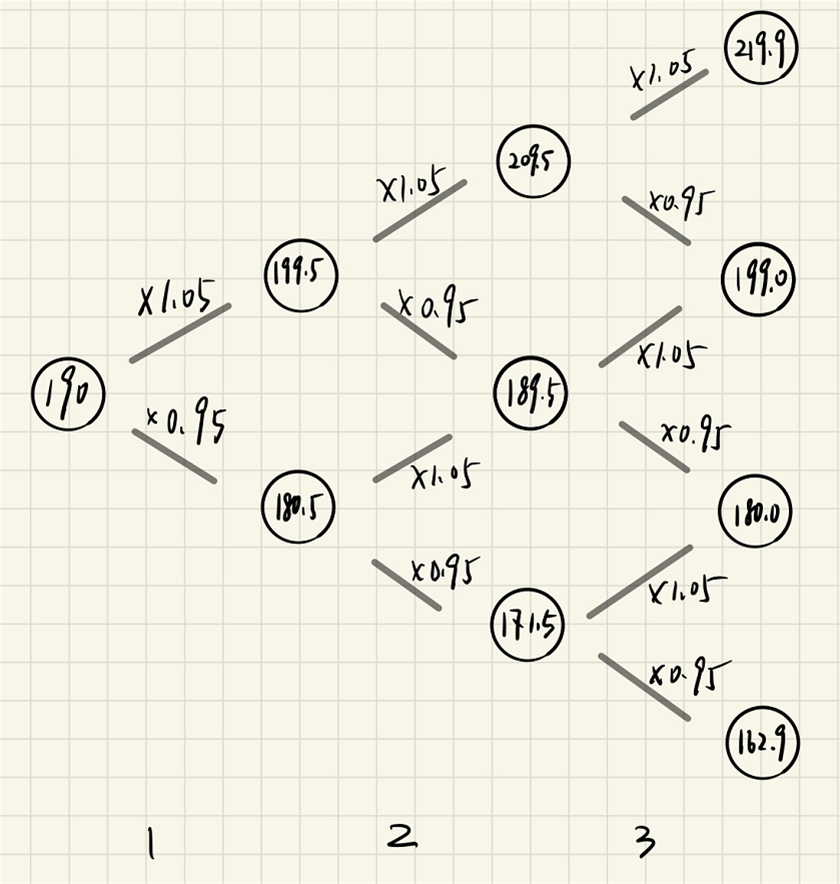 219.9
×1.05
209.5
×1.05
×0.95
199.5
199.0
×1.05
×0.95
×1.05
190
189.5
×0.95
×0.95
×1.05
180.5
180.0
×0.95
×1.05
171.5
×0.95
162.9
1 2 3